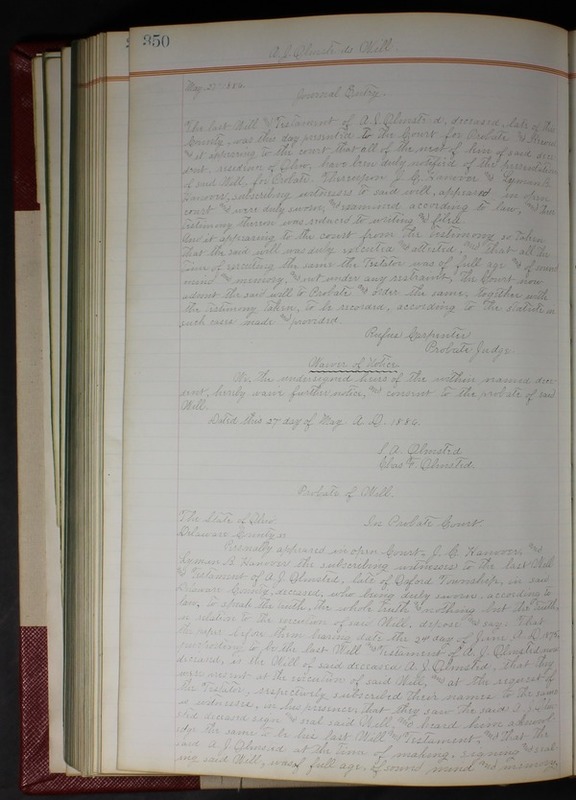 350
A. J. Olmsteds Will.
May 27th 1886.
Journal Entry.
The last Will and Testament of A. J. Olmsted, deceased, late of this
County, was this day presented to the Court for Probate and Record
and it appearing to the court that all of the next of kin of said dece-
dent, resident of Ohio, have been duly notified of the presentation
of said Will for Probate. Thereupon J. G. Hanover and Lyman B.
Hanover, subscribing witnesses to said will, appeared in open
court and were duly sworn, and examined according to law, and their
testimony therein was reduced to writing and filed.
And it appearing to the court from the testimony so taken
that the said will was duly executed and attested, and that at the
time of executing the same the Testator was of full age and of sound
mind and memory, and not under any restraint, the Court now
admit the said will to Probate and order the same, together with
the testimony taken, to be recorded, according to the statute in
such cases made and provided.
Rufus Carpenter
Probate Judge
Waiver of Notice
We, the undersigned heirs of the within named dece-
dent, hereby waive further notice, and consent to the probate of said
Will.
Dated this 27 day of May A. D. 1886.
S. A. Olmsted
Chas. F. Olmsted
Probate of Will.
The State of Ohio
In Probate Court.
Delaware County ss
Personally appeared in open Court, J. G. Hanover, and
Lyman B. Hanover the subscribing witnesses to the last Will
and Testament of A. J. Olmsted, late of Oxford Township, in said
Delaware County, deceased, who being duly sworn according to
law, to speak the truth, the whole truth and nothing but the truth,
in relation to the execution of said Will, depose and say: That
the paper before them bearing date the 24 day of June A. D.
purporting to be the last Will and Testament of A. J. Olmsted, now
deceased, is the Will of said deceased A. J. Olmsted, that they
were present at the execution of said Will, and at the request of
the Testator, respectively subscribed their names to the same
as witnesses, in his presence, that they saw the said A. J. Olm-
sted deceased sign and seal said Will and heard him acknowl-
edge the same to be his last Will and Testament, and that the
said A. J. Olmsted at the time of making, signing and seal-
ing said Will, was of full age, of sound mind and memory,